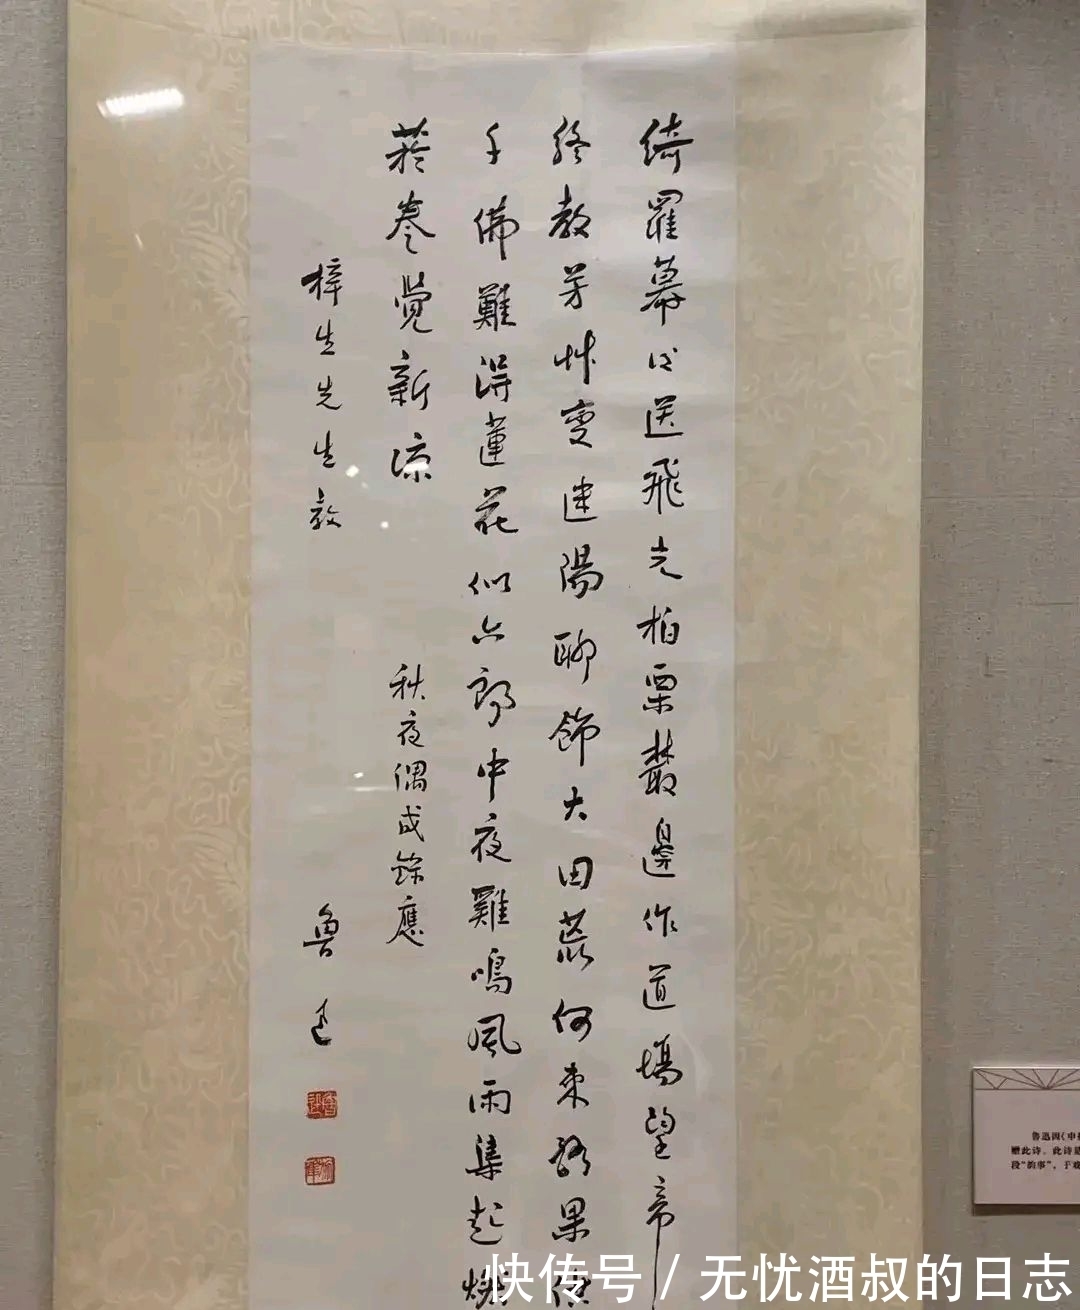 綺羅幕后送飛光柏栗叢邊作道場望帝
終教芳艸變迷陽聊飾大田荒何來酪果供
千佛難得蓮花似六郎中夜雞鳴風雨集起燃
菸卷覺新涼 秋夜偶成錄應
梓生先生教 魯迅
魯迅
鲁迅因《申
赠此诗。此诗是
段“韵事”，于
快传号 / 无忧酒叔的日志